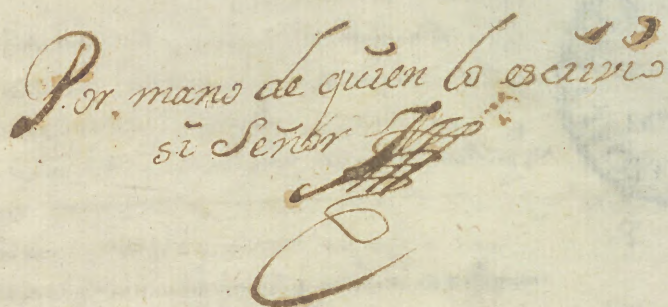 Por mano de quien lo escrivio
si Señor